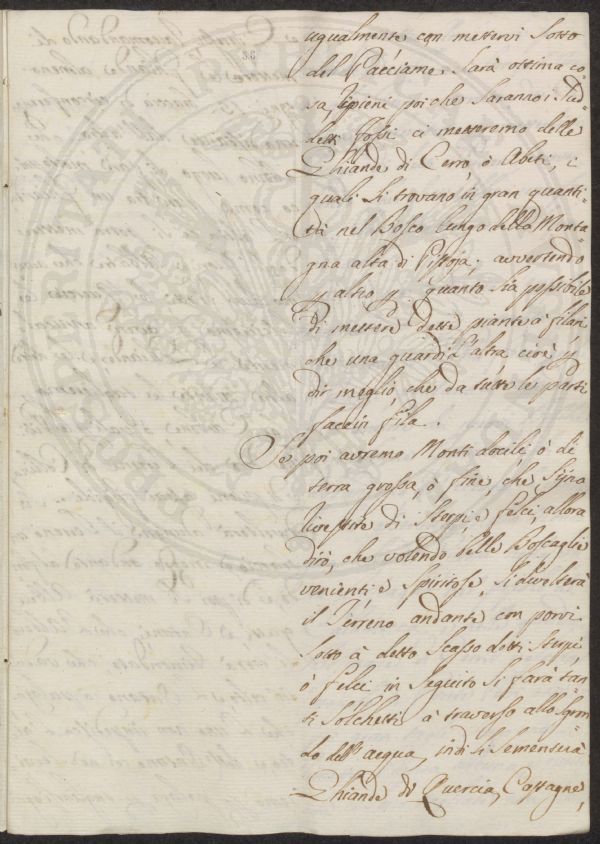 36
ugualmente con mettervi sotto
del Pacciame sarà ottima co=
sa, ripieni poi che saranno i sud=
detti fossi ci metteremo delle
Ghiande di Cerro, ò Abeti, i
quali si trovano in gran quanti=
tà nel Bosco lungo della Monta=
gna alta di Pistoja; avvertendo
altro quanto sia possibile
di mettere dette piante à filari
che una guardi l'altra cioè p
dir meglio, che da tutte le parti
faccin fila.
Se poi avremo Monti docili ò di
terra grossa, ò fine, che sijno
di Sterpi e felci, allora
dirò, che volendo delle Boscaglie
venienti e spiritose, si divelterà
il Terreno andante con porvi
sotto à detto scasso detti sterpi,
ò felci in seguito si farà tan=
ti solchetti à traverso allo Gron=
do dell'acqua, indi si sementerà
Ghiande di Quercia, Castagne,